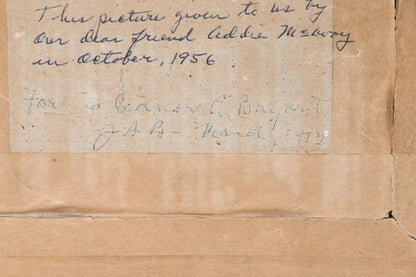 This picture given to us by
our dear friend Addie McEvoy
in October, 1956
to Eleanore C. Bryant
J A B - March, 1992